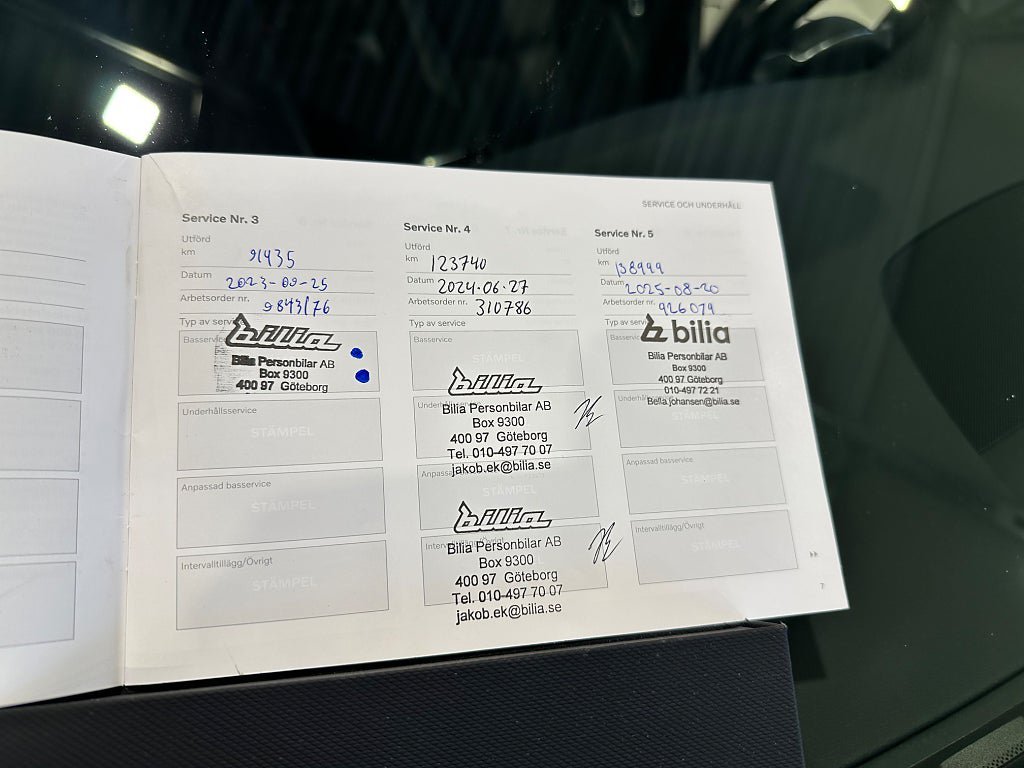 SERVICE OCH UNDERHÅLL
Service Nr. 3
Utförd
km 91435
Datum 2023-09-25
Arbetsorder nr. 9843176
Typ av service
Basservice
bilia
Bilia Personbilar AB
Box 9300
400 97 Göteborg
Underhållsservice
STÄMPEL
Anpassad basservice
STÄMPEL
Intervalltillägg/Övrigt
STÄMPEL
Service Nr. 4
Utförd
km 123740
Datum 2024.06.27
Arbetsorder nr. 310786
Typ av service
Basservice
STÄMPEL
bilia
Bilia Personbilar AB
Box 9300
400 97 Göteborg
Tel. 010-497 70 07
jakob.ek@bilia.se
STÄMPEL
bilia
Bilia Personbilar AB
Box 9300
400 97 Göteborg
Tel. 010-497 70 07
jakob.ek@bilia.se
Service Nr. 5
Utförd
km 138999
Datum 2025-08-20
Arbetsorder nr. 926079
Typ av service
Basservice
bilia
Bilia Personbilar AB
Box 9300
400 97 Göteborg
010-497 72 21
Bella.johansen@bilia.se
STÄMPEL
Anpassad basservice
STÄMPEL
Intervalltillägg/Övrigt
STÄMPEL
7